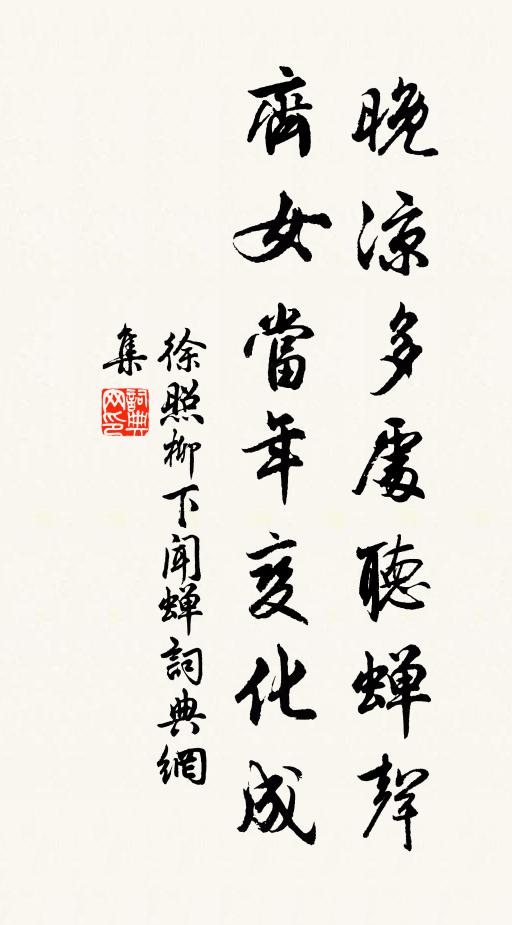 晚涼多處聽蟬聲
齊女當年变化成
徐照柳下闻蝉詞典網
集
詞典
网印